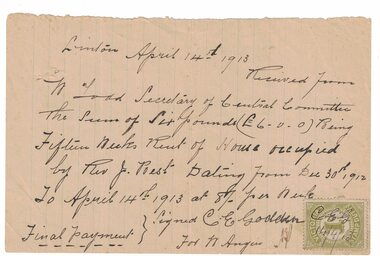 Linton April 14th 1913
Received from
W Todd Secretary of Central Committee
the Sum of Six pounds (£6-0-0) Being
Fifteen Weeks Rent of House occupied
by Rev J. Best Dating from Dec 30th 1912
To April 14th 1913 at 8/- per Week
Signed C E Godden
Final Payment
For W Angus